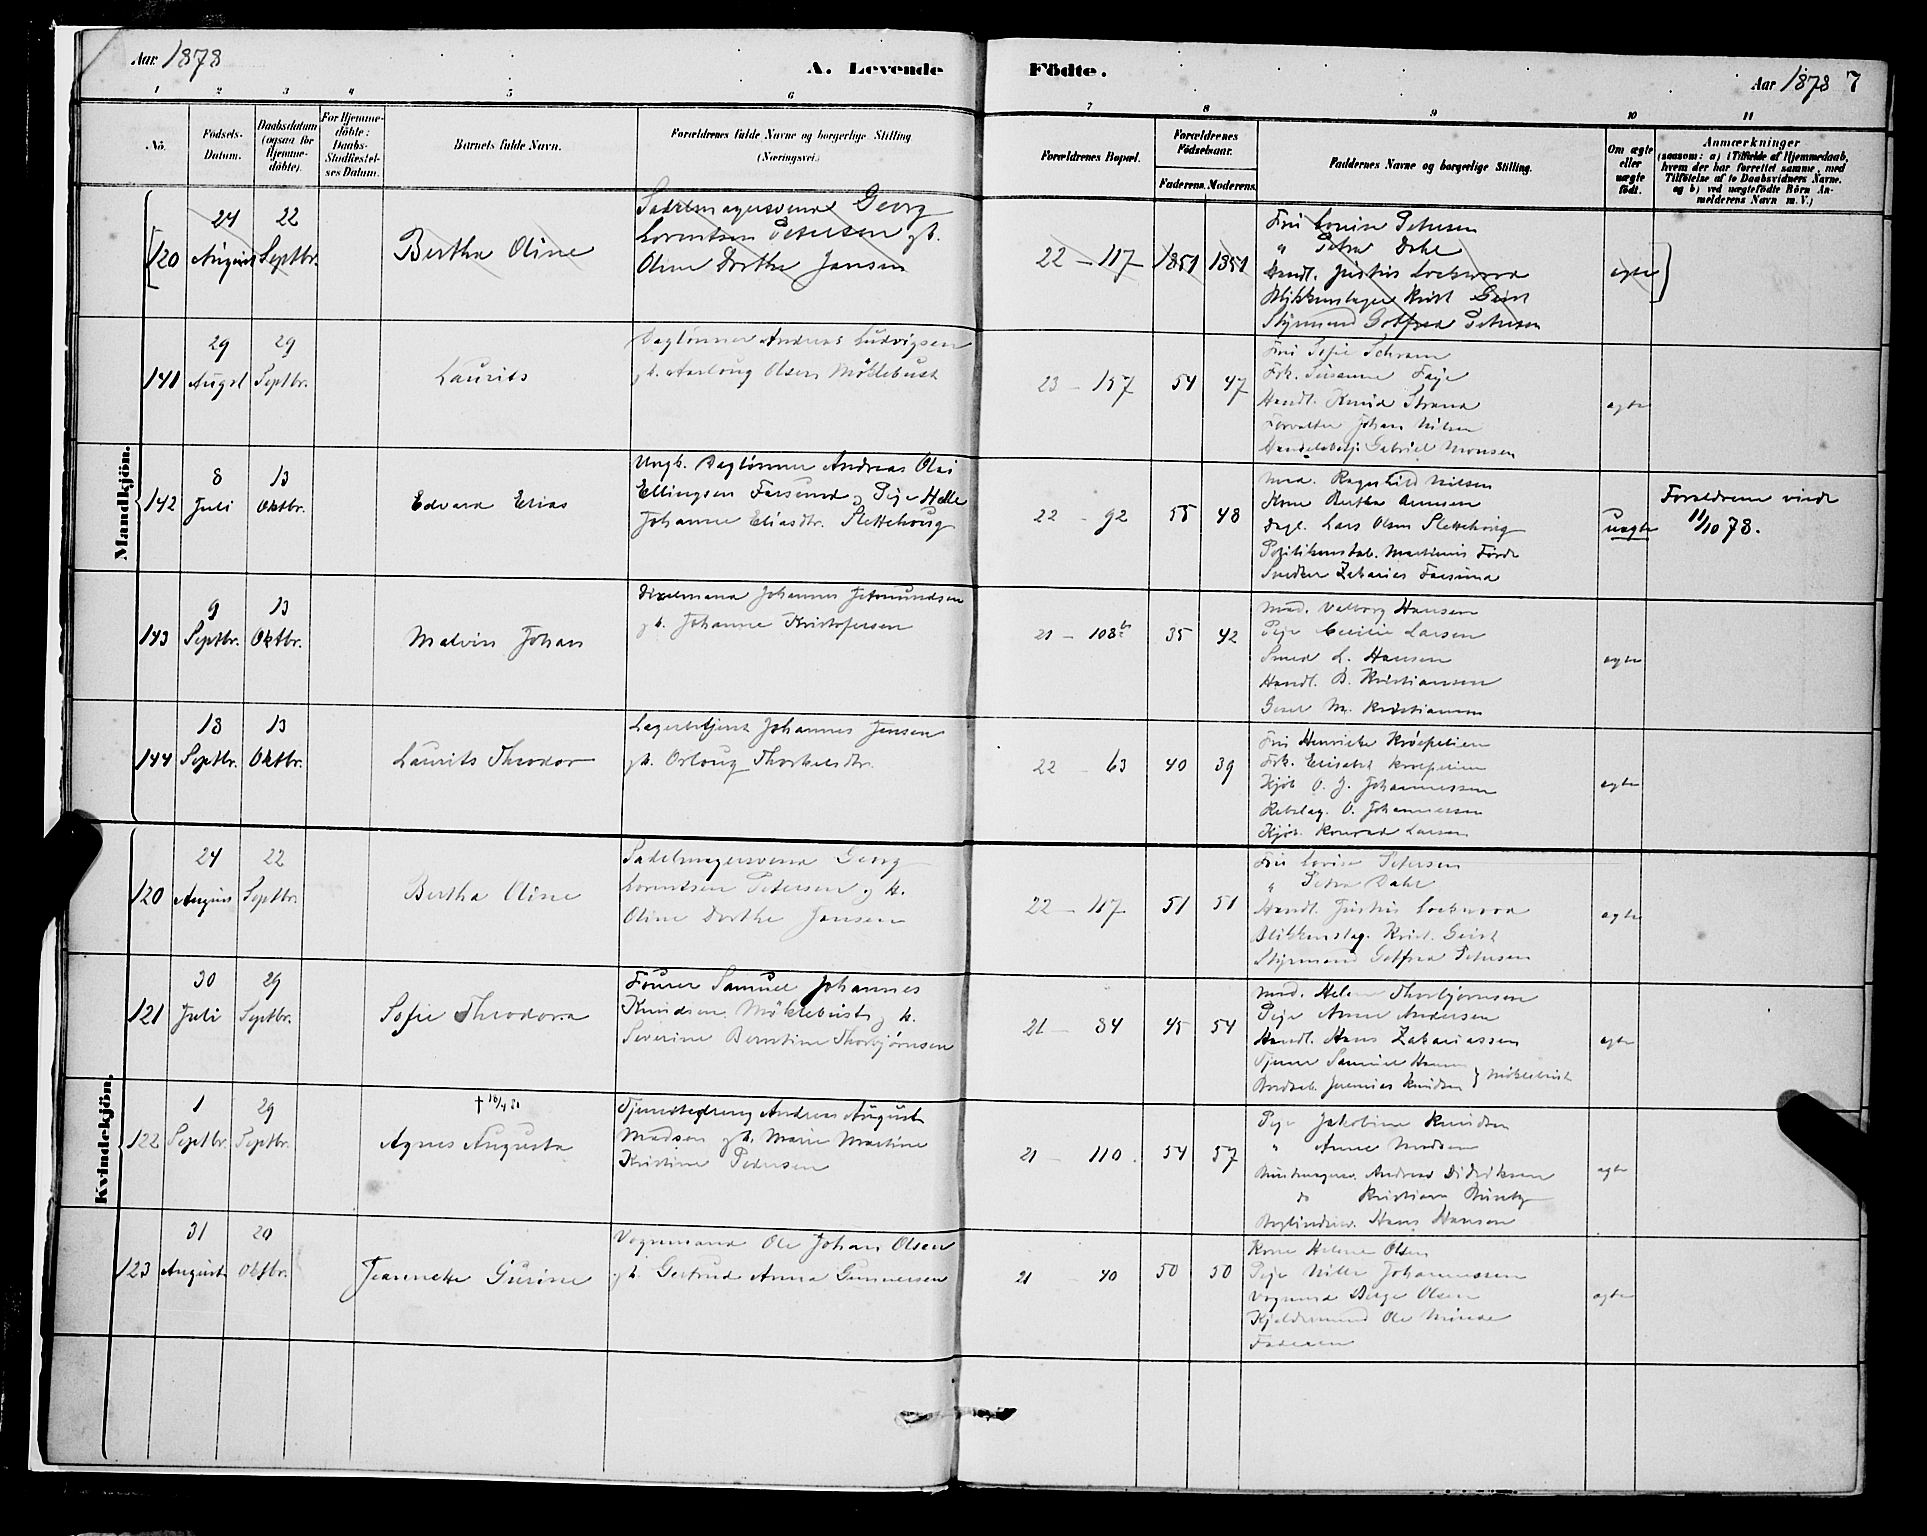 Aar 1878
A. Levende Födte.
Aar 1878 7
1 2 3 4 5 6 7 8 9 10 11
No.
Födsels-Datum.
Daabsdatum (ogsaa for Hjemme-döbte).
For Hjemme-döbte: Daabs-Stadfæstel-ses Datum.
Barnets fulde Navn.
Forældrenes fulde Navne og borgerlige Stilling (Næringsvei.)
Forældrenes Bopæl.
Forældrenes Födselsaar.
Faderens. Moderens.
Faddernes Navne og borgerlige Stilling.
Om ægte eller uægte födt.
Anmærkninger
(saasom: a) i Tilfælde af Hjemmedaab,
hvem der har forrettet samme, med
Tilföielse af to Daabsvidners Navne,
og b) ved uægtefödte Börn An-
melderens Navn m. V.)
Mandkjön.
120
24 August
22 Septbr.
Bertha Oline
Sadelmagersvend Georg
Lorentsen Petersen gh.
Oline Dorthe Jansen
22 – 117
1851 1851
Fru Lovise Petersen
" Petra Dahl
Handl. Justus Lockwood
Blikkenslager Krist Geist
Styrmand Gotfred Petersen
ægte
141
29 August
29 Septbr.
Laurits
Daglønner Andreas Ludvigsen
gh. Aarloug Olsen Möklebust
23 – 157
54 47
Fru Sofie Schram
Frk. Susanne Faye
Handl. Knud Strand
Forvalter Johan Nilsen
Handelsbetj. Gabriel Monsen
ægte
142
8 Juli
13 Oktbr.
Edvard Elias
Ungk. Daglønner Andreas Olai
Ellingsen Farsund og Pige Helle
Johanne Eliasdtr. Slettehoug
22 – 92
55 48
Mad. Ragnhild Nilsen
Kone Bertha Arnesen
Dagl. Lars Olsen Slettehoug
Politikonstab. Martinius Förde
Snedker Zakarias Farsund
uægte
Forældrene viede
11/10 78.
143
9 Septbr.
13 Oktbr.
Malvin Johan
Dixelmand Johannes Jetmundsen
gh. Johanne Kristofersen
21 – 108b
35 42
Mad. Valborg Hansen
Pige Cecilie Larsen
Smed L. Hansen
Handl. B. Kristiansen
Gesel M. Kristiansen
ægte
144
18 Septbr.
13 Oktbr.
Laurits Theodor
Lagerbetjent Johannes Jensen
gh. Orloug Thorkelsdtr.
22 – 63
40 39
Fru Henriette Kröepelien
Frk. Elisabet Kröepelien
Kjöb O. J. Johannessen
Rebslag. O. Johannessen
Kjöb. Konrad Larsen
ægte
Kvindekjön.
120
24 August
22 Septbr.
Bertha Oline
Sadelmagersvend Georg
Lorentsen Petersen gh.
Oline Dorthe Jansen
22 – 117
51 51
Fru Lovise Petersen
" Petra Dahl
Handl. Justus Lockwood
Blikkenslag. Krist. Geist
Styrmand Gotfred Petersen
ægte
121
30 Juli
29 Septbr.
Sofie Theodora
Fourer Samuel Johannes
Knudsen Möklebust gh.
Severine Berntine Thorbjørnsen
21 – 84
45 54
Mad. Helene Thorbjørnsen
Pige Anne Andersen
Handl. Hans Zakariassen
Tjener Samuel Hansen
Jeremias Knudsen } Möklebust
ægte
122
1 Septbr.
29 Septbr.
† 16/4 81
Agnes Augusta
Tjenestedreng Andreas August
Madsen gh. Marie Martine
Kristine Pedersen
21 – 110
54 57
Pige Jakobine Knudsen
" Anne Madsen
Buntmagersv. Andreas Didriksen
do Kristian Buntz
Bogbindersv. Hans Hansen
ægte
123
31 August
20 Oktbr.
Jeannette Gurine
Vognmand Ole Johan Olsen
gh. Gertrude Anna Gunnersen
21 – 40
50 50
Kone Helene Olsen
Pige Nille Johannessen
Vognmand Börge Olsen
Kjeldermand Ole Monsen
Faderen
ægte